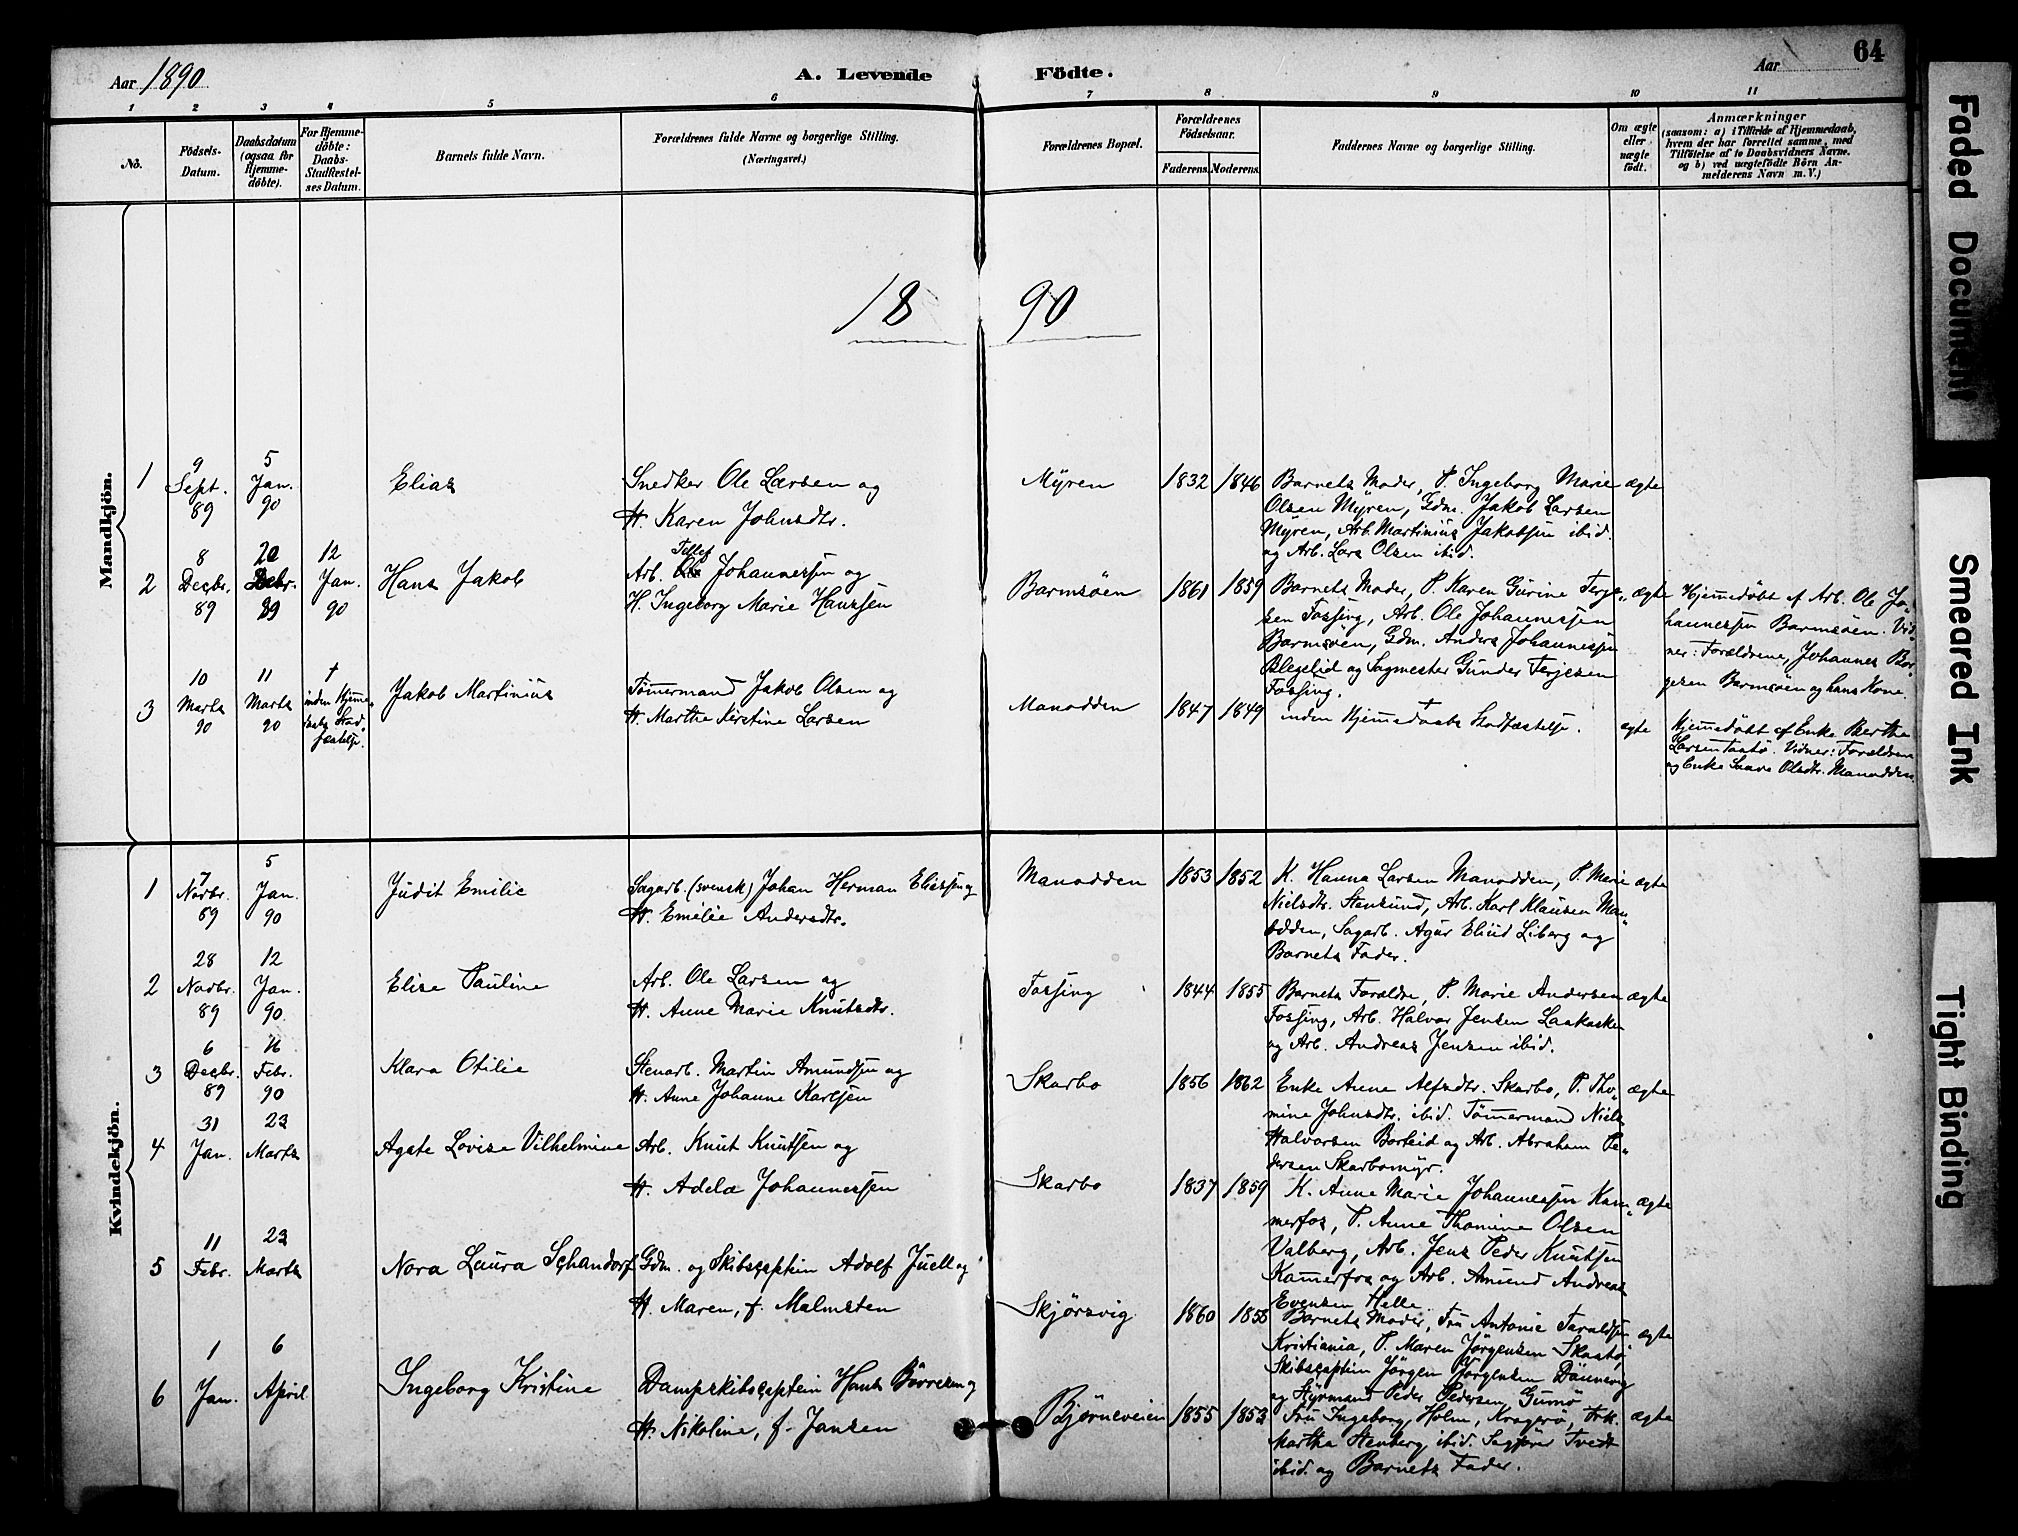 Aar 1890
A. Levende Födte.
Aar
64
1 2 3 4 5 6 7 8 9 10 11
No.
Födsels-Datum.
Daabsdatum (ogsaa for Hjemme-döbte).
For Hjemme-döbte: Daabs-Stadfæstel-ses Datum.
Barnets fulde Navn.
Forældrenes fulde Navne og borgerlige Stilling.
(Næringsvei.)
Forældrenes Bopæl.
Forældrenes Födselsaar.
Faderens. Moderens.
Faddernes Navne og borgerlige Stilling.
Om ægte eller uægte født.
Anmærkninger
(saasom: a) i Tilfælde af Hjemmedaab,
hvem der har forrettet samme, med
Tilföielse af to Daabsvidners Navne.
og b) ved uægtefödte Börn An-
melderens Navn m. V.)
18 90
Mandkjön.
1
9 Sept. 89
5 Jan. 90
Elias
Snedker Ole Larsen og
H. Karen Johnsdtr.
Myren
1832 1846
Barnets Moder, P. Ingeborg Marie
Olsen Myren, Gdm. Jakob Larsen
Myren, Arb. Martinius Jakobsen ibid.
og Arb. Lars Olsen ibid.
ægte
2
8 Decbr. 89
20 Decbr. 89
12 Jan. 90
Hans Jakob
Tellef
Arb. Johannessen og
H. Ingeborg Marie Hanssen
Barmsöen
1861 1859
Barnets Moder, P. Karen Gurine Terje-
sen Fossing, Arb. Ole Johannessen
Barmsöen, Gdm. Anders Johannessen
Blegelid og Sagmester Gunder Terjesen
Fossing.
ægte
Hjemmedöbt af Arb. Ole Jo-
hannessen Barmsöen. Vid-
ner: Forældrene, Johannes Bör-
gesen Barmsöen og hans Kone.
3
10 Marts 90
11 Marts 90
† inden Hjemme-
daabs Stad-
fæstelse.
Jakob Martinius
Tömermand Jakob Olsen og
H. Marthe Kirstine Larsen
Manodden
1847 1849
† inden Hjemmedaabs Stadfæstelse.
ægte
Hjemmedöbt af Enke Berthe
Larsen Taatö. Vidner: Forældrene
og Enke Olsdtr. Manodden.
Kvindekjön.
1
7 Novbr. 89
5 Jan. 90
Judit Emilie
Sagarb. (svensk) Johan Herman Eliassen og
H. Emilie Andersdtr.
Manodden
1853 1852
K. Hanna Larsen Manodden, P. Marie
Nielsdtr. Stensund, Arb. Karl Klausen Man-
odden, Sagarb. Agur Eliud Liberg og
Barnets Fader.
ægte
2
28 Novbr. 89
12 Jan. 90.
Elise Pauline
Arb. Ole Larsen og
H. Anne Marie Knutsdtr.
Fossing
1844 1855
Barnets Forældre, P. Marie Andersen
Fossing, Arb. Halvor Jensen
og Arb. Andreas Jensen ibid.
ægte
3
6 Decbr. 89
16 Febr. 90
Klara Otilie
Stenarb. Martin Amundsen og
H. Anne Johanne Karlsen
Skarbo
1856 1862
Enke Anne Alfsdtr. Skarbo, P. Tho-
mine Johnsdtr. ibid. Tömermand Niels
Halvorsen Borteid og Arb. Abraham Pe-
dersen Skarbomyr.
ægte
4
31 Jan.
23 Marts
Agate Lovise Vilhelmine
Arb. Knut Knutsen og
H. Adela Johannessen
Skarbo
1837 1859
K. Anne Marie Johannessen Kam-
merfos, P. Anne Thomine Olsen
Valberg, Arb. Jens Peder Knutsen
Kammerfos og Arb. Amund Andreas
Evensen Helle.
ægte
5
11 Febr.
23 Marts
Nora Laura Schandorf
Gdm. og Skibscaptein Adolf Juell og
H. Maren, f. Malmsten
Skjörsvig
1860 1858
Barnets Moder, Fru Antonie Taraldsen
Kristiania, P. Maren Jörgensen Skaatö,
Skibscaptein Jörgen Jörgensen Dönnevig
og Styrmand Peder Pedersen Gumö
ægte
6
1 Jan.
6 April
Ingeborg Kristine
Dampskibscaptein Hans Börresen og
H. Nikoline, f. Jansen
Bjørneveien
1855 1853
Fru Ingeborg Holm, Kragerö, Frk.
Martha Stenberg ibid. Sagförer Tvedt
ibid. og Barnets Fader.
ægte
Faded Document
Smeared Ink
Tight Binding